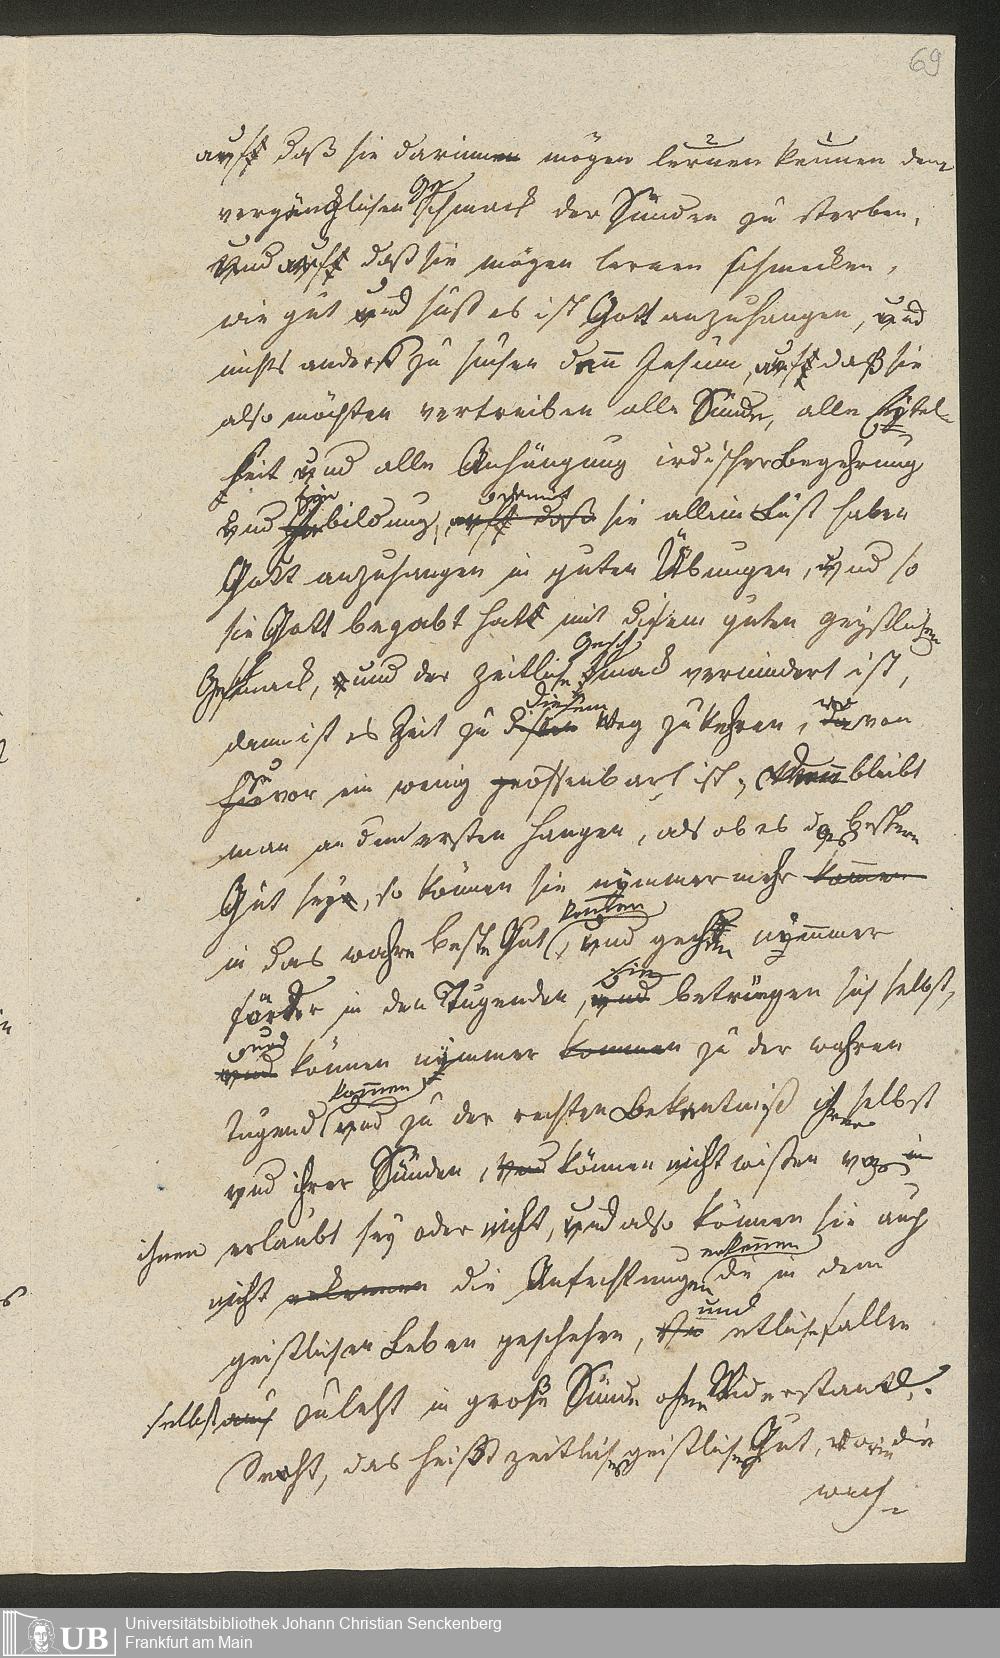 69
auff daß sie darinnen mögen lernen können dem
vergänglichen Geschmack der Sünden zu sterben,
und auff daß sie mögen lernen schmecken,
wie gut und süß es ist Gott anzuhangen, und
nichts anders zu suchen denn Jesum, auff daß sie
also möchten vertreiben alle Sünde, alle Eytel-
keit und alle Anhängung irdischer Begehrung
und Einbildung, damit sie allein Lust haben
Gott anzuhangen in guten Übungen, und so
sie Gott begabt hatt mit disem guten geystlichen
Geschmack, und der zeitliche Geschmack vermindert ist,
dann ist es Zeit zu diesem Weg zu kehren, wovon
hievor ein wenig geoffenbart ist; bleibt
man an dem ersten hangen, als ob es das beste
Gut sey, so können sie nymmermehr kommen
in das wahre beste Gut kommen, und gehen nymmer
förder in den Tugenden, sie betrügen sich selbst,
und können nymmer kommen zu der wahren
Tugend kommen und zu der rechten Bekentniß ihrer selbst
und ihrer Sünden, können nicht wissen was
ihnen erlaubt sey oder nicht, und also können sie auch
nicht erkennen die Anfechtungen erkennen die in dem
geistlichen Leben geschehen, und etliche fallen
selbst auch zuletzt in große Sünde ohne Widerstand.
Secht, das heißt zeitliches geistliches Gut, die
wach-
Universitätsbibliothek Johann Christian Senckenberg
UB Frankfurt am Main